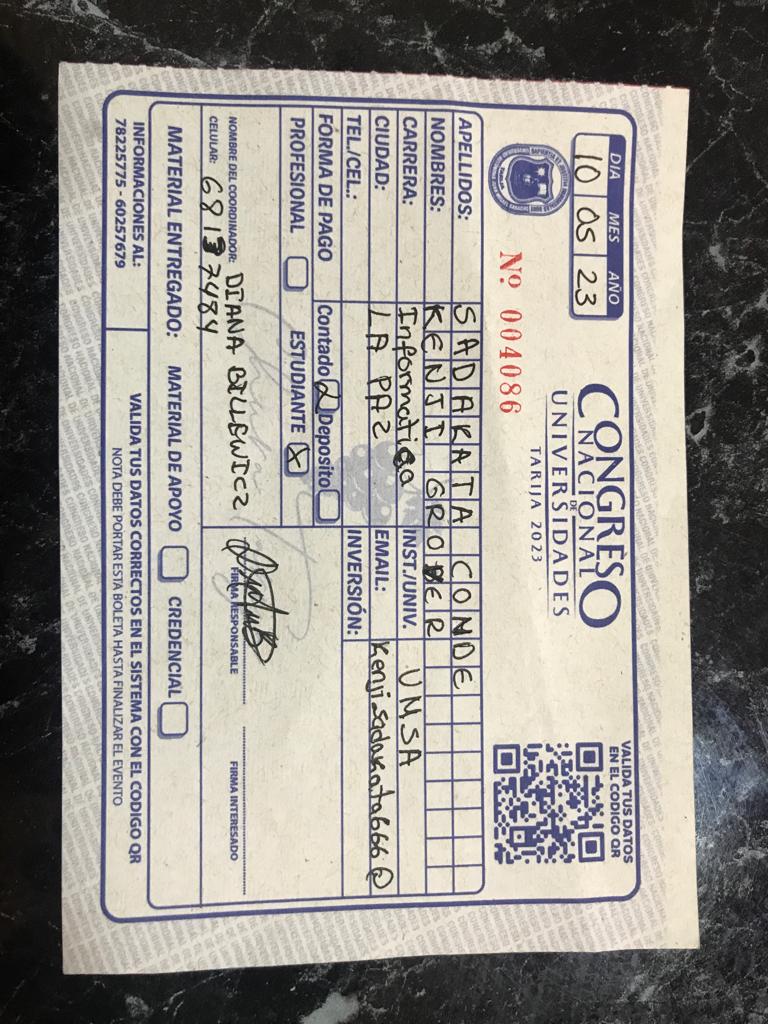 DIA MES AÑO
10 05 23
CONGRESO
NACIONAL
DE
UNIVERSIDADES
TARIJA 2023
VALIDA TUS DATOS
EN EL CODIGO QR
Nº 004086
APELLIDOS: SADAKATA CONDE
NOMBRES: KENJI GROBER
CARRERA: Informatica INST./UNIV. UMSA
CIUDAD: LA PAZ EMAIL: Kenjisadakata666@
TEL./CEL.: INVERSIÓN:
FORMA DE PAGO Contado Deposito
PROFESIONAL ESTUDIANTE X
NOMBRE DEL COORDINADOR: DIANA BILLEWICZ
CELULAR: 68137484
FIRMA RESPONSABLE FIRMA INTERESADO
MATERIAL ENTREGADO: MATERIAL DE APOYO CREDENCIAL
INFORMACIONES AL:
78225775 - 60257679
VALIDA TUS DATOS CORRECTOS EN EL SISTEMA CON EL CODIGO QR
NOTA DEBE PORTAR ESTA BOLETA HASTA FINALIZAR EL EVENTO